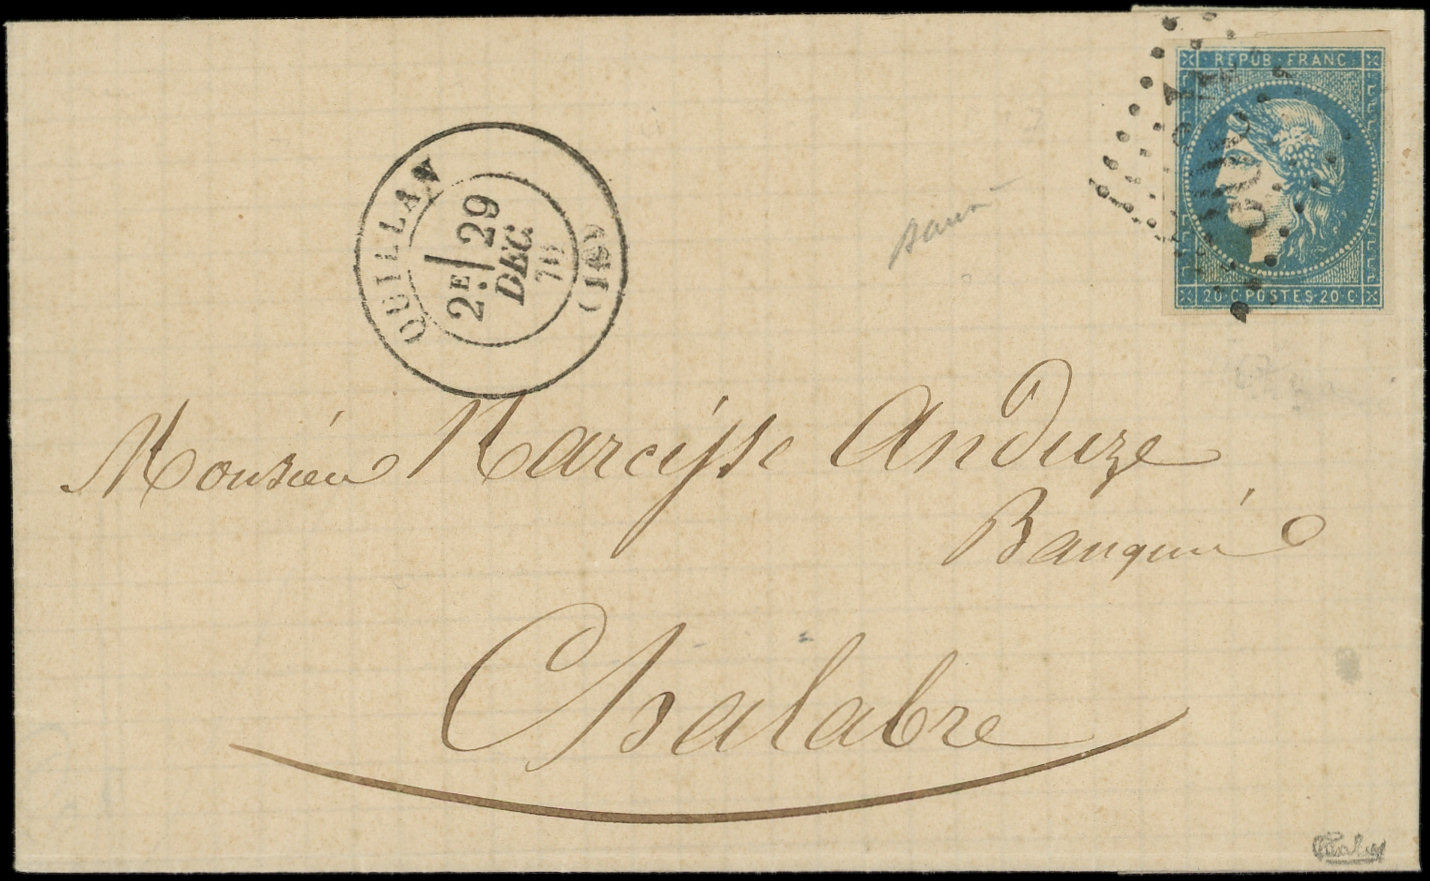 REPUB. FRANC
20·C·POSTES·20·C
QUILLAN
2E 29
DEC.
70
Monsieur Narcisse Anduze
Banquier
Chalabre